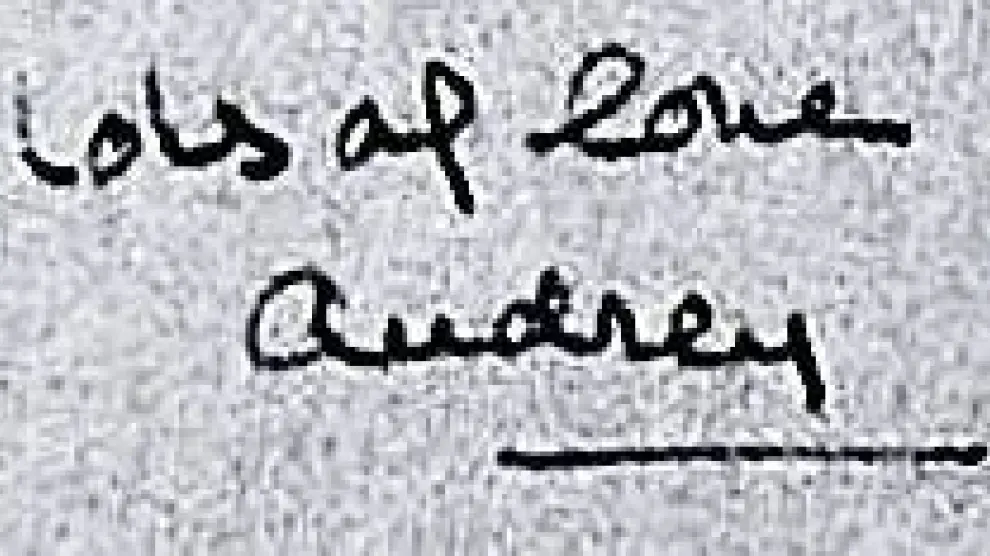 lots of love
Audrey